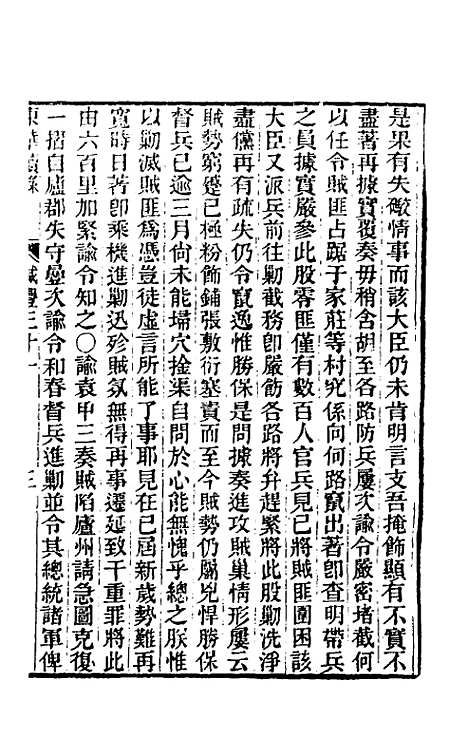 是果有失礮情事而該大臣仍未肯明言支吾掩飾顯有不實不
盡著再據實覆奏毋稍含胡至各路防兵屢次諭令嚴密堵截何
以任令賊匪占踞于家莊等村究係向何路竄出著卽查明帶兵
之員據實嚴參此股零匪僅有數百人官兵見已將賊匪圍困該
大臣又派兵前往勦截務卽嚴飭各路將弁趕緊將此股勦洗淨
盡儻再有疏失仍令竄逸惟勝保是問據奏進攻賊巢情形屢云
賊勢窮蹙已極粉飾鋪張敷衍塞責而至今賊勢仍屬兇悍勝保
督兵已逾三月尙未能壖穴擒渠自問於心能無愧乎總之朕惟
以勦滅賊匪爲憑豈徒虛言所能了事耶見在已屆新歲勢難再
寬時日著卽乘機進勦迅殄賊氛無得再事遷延致干重罪將此
由六百里加緊諭令知之〇諭袁甲三奏賊陷廬州請急圖克復
一摺自廬郡失守屢次諭令和春督兵進勦並令其總統諸軍俾
東華續錄 咸豐三十一 三